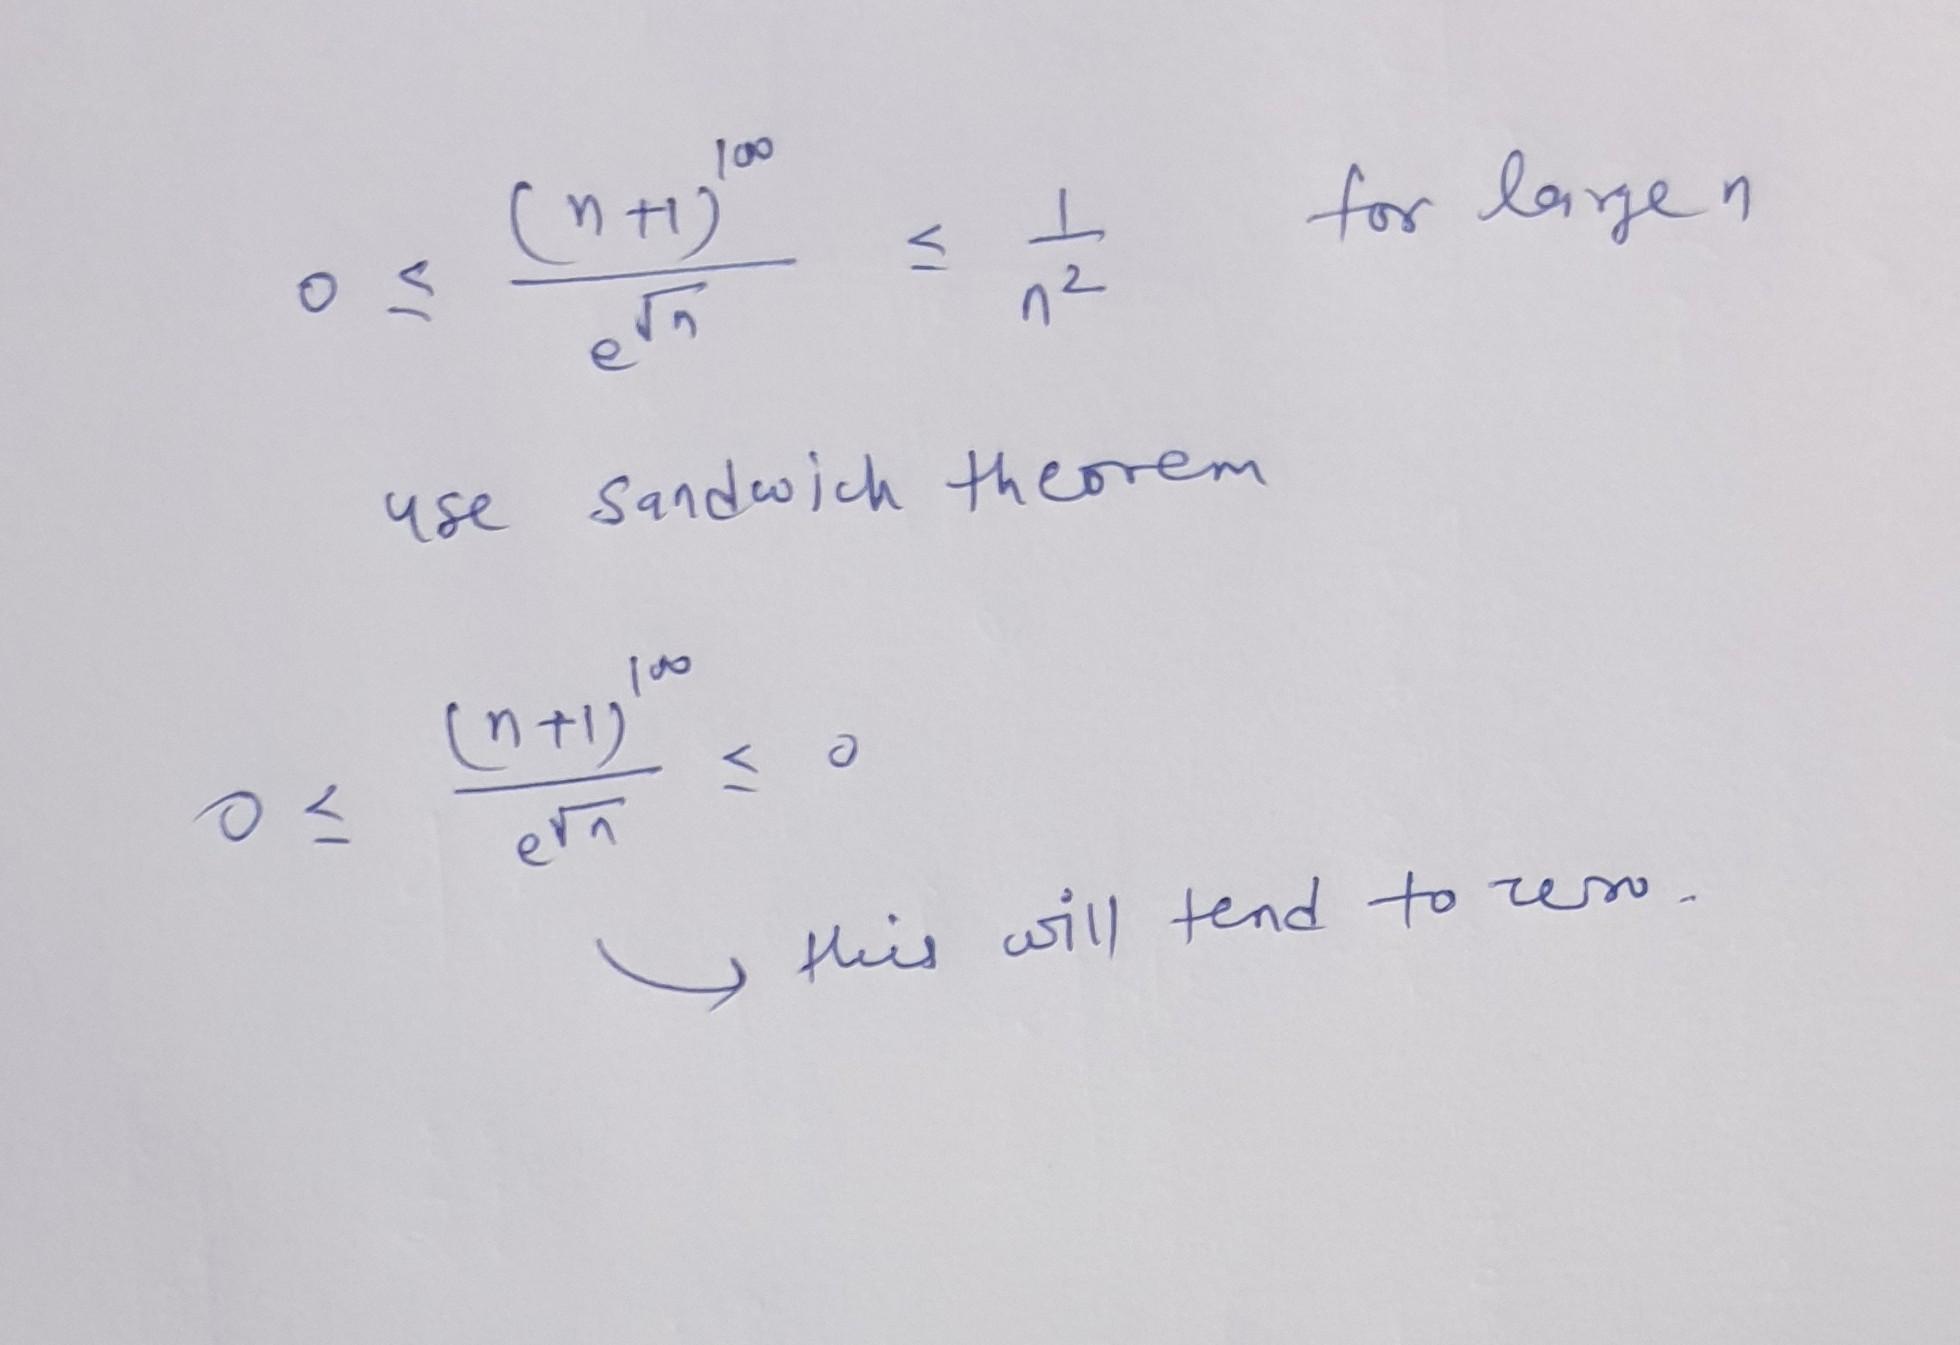 0 ≤ (n+1)^100 / e^√n ≤ 1/n^2 for large n
use sandwich theorem
0 ≤ (n+1)^100 / e^√n ≤ 0
this will tend to zero.